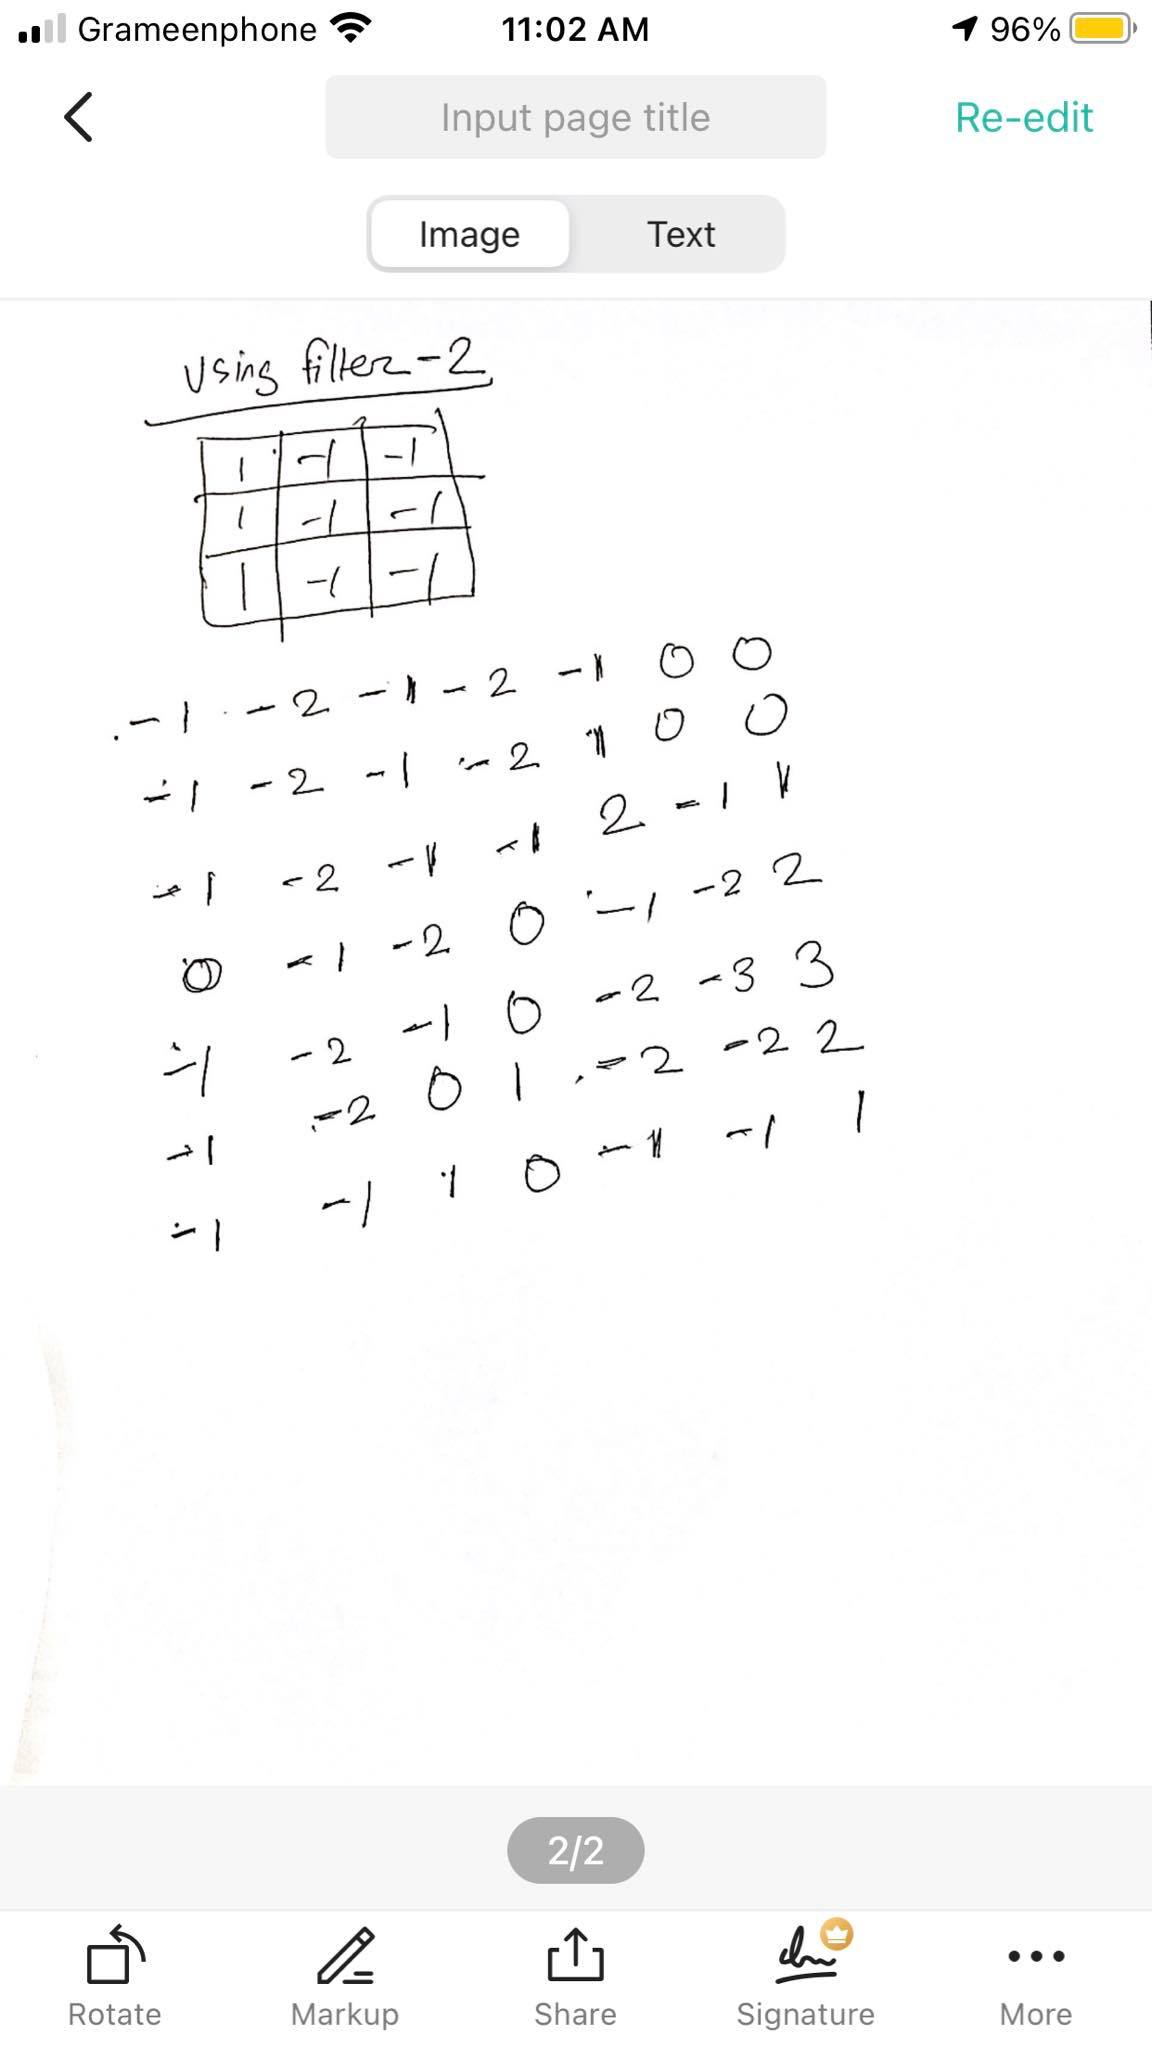 Grameenphone 11:02 AM 96%
Input page title Re-edit
Image Text
Using filter-2
1 -1 -1
1 -1 -1
1 -1 -1
-1 -2 -1 -2 -1 0 0
-1 -2 -1 -2 1 0 0
-1 -2 -1 -1 2 -1 1
0 -1 -2 0 -1 -2 2
-1 -2 -1 0 -2 -3 3
-1 -2 0 1 -2 -2 2
-1 -1 1 0 -1 -1 1
2/2
Rotate Markup Share Signature More